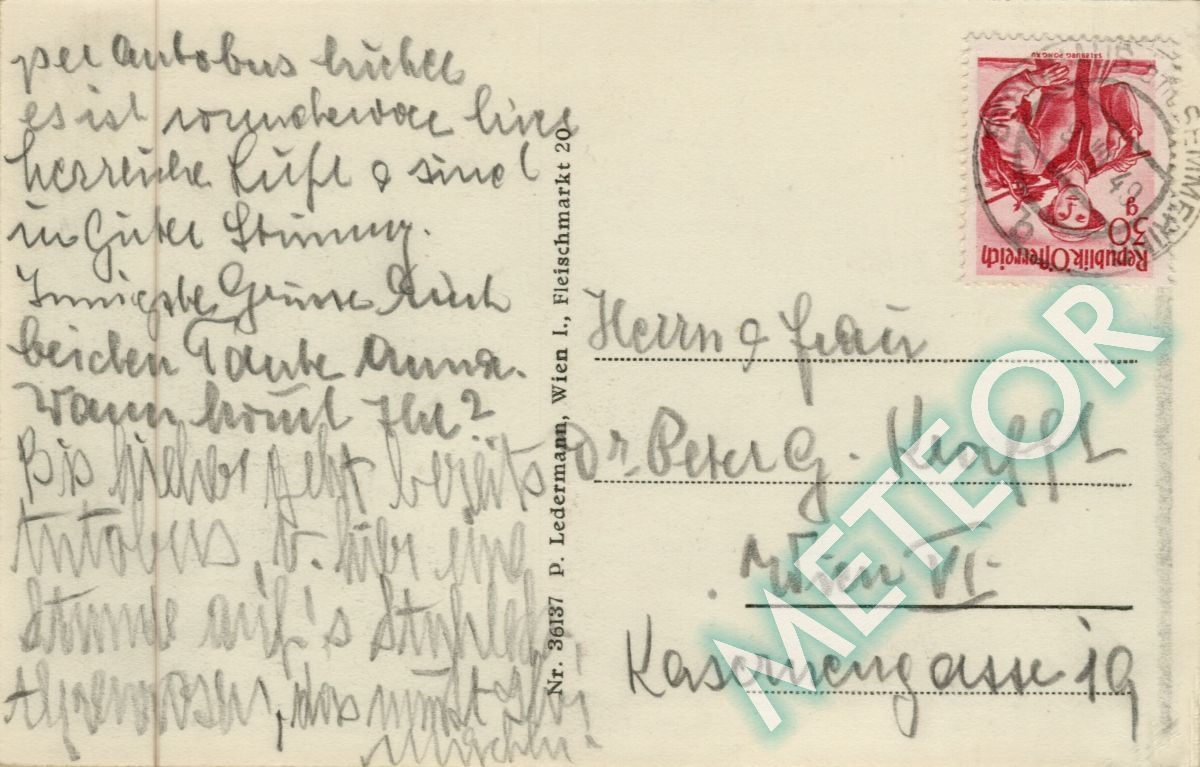 per Autobus hieher
es ist wunderbar hier
herrliche Luft & sind
in Guter Stimmung.
Innigste Grüsse Euch
beiden Tante Anna.
Wann kommt Ihr?
Bis hieher geht bereits
Autobus, v. hier eine
Stunde auf's
, das müsst Ihr
Nr. 36137 P. Ledermann, Wien I., Fleischmarkt 20
SALZBURG PONGAU
30 g
Republik Österreich
SEMMERING
49
Herrn & Frau
Dr. Peter G. Krafft
Wien VI.
Kasernengasse 19
METEOR